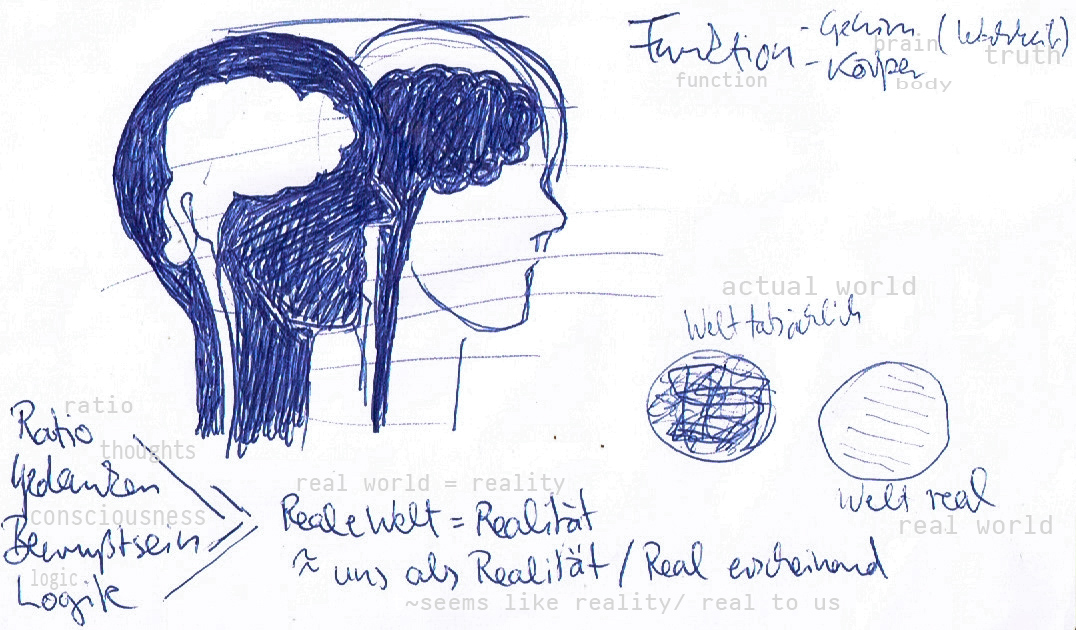 Funktion - Gehirn (Wahrheit)
brain truth
- Körper
function
body
actual world
Welt tatsächlich
Ratio
ratio
thoughts
Gedanken
consciousness
Bewußtsein
logic
Logik
real world = reality
Reale Welt = Realität
≈ uns als Realität / Real erscheinend
~seems like reality/ real to us
Welt real
real world